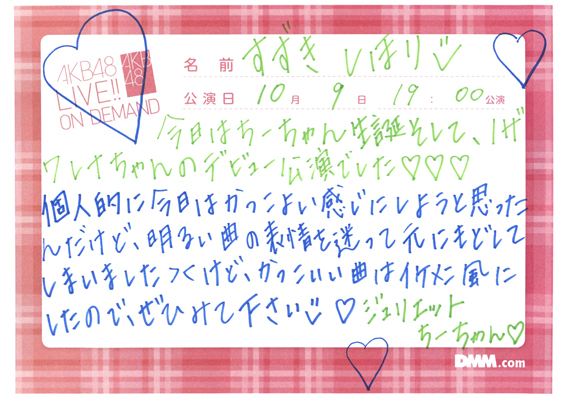 AKB48
LIVE!!
ON DEMAND
AKB
48
名前 すずき しほり
公演日 10月 9日 19:00公演
今日はちーちゃん生誕そして、イザ
ワレナちゃんのデビュー公演でした♡♡♡
個人的に今日はかっこよい感じにしようと思った
んだけど、明るい曲の表情を迷って元にもどして
しまいましたっくけど、かっこいい曲はイケメン風に
したので、ぜひみて下さい ♡ ジュリエット
ちーちゃん♡
DMM.com